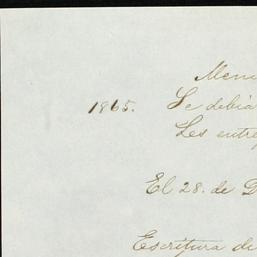 1865.
Se debía
Les entre
El 28. de D
Escritura de